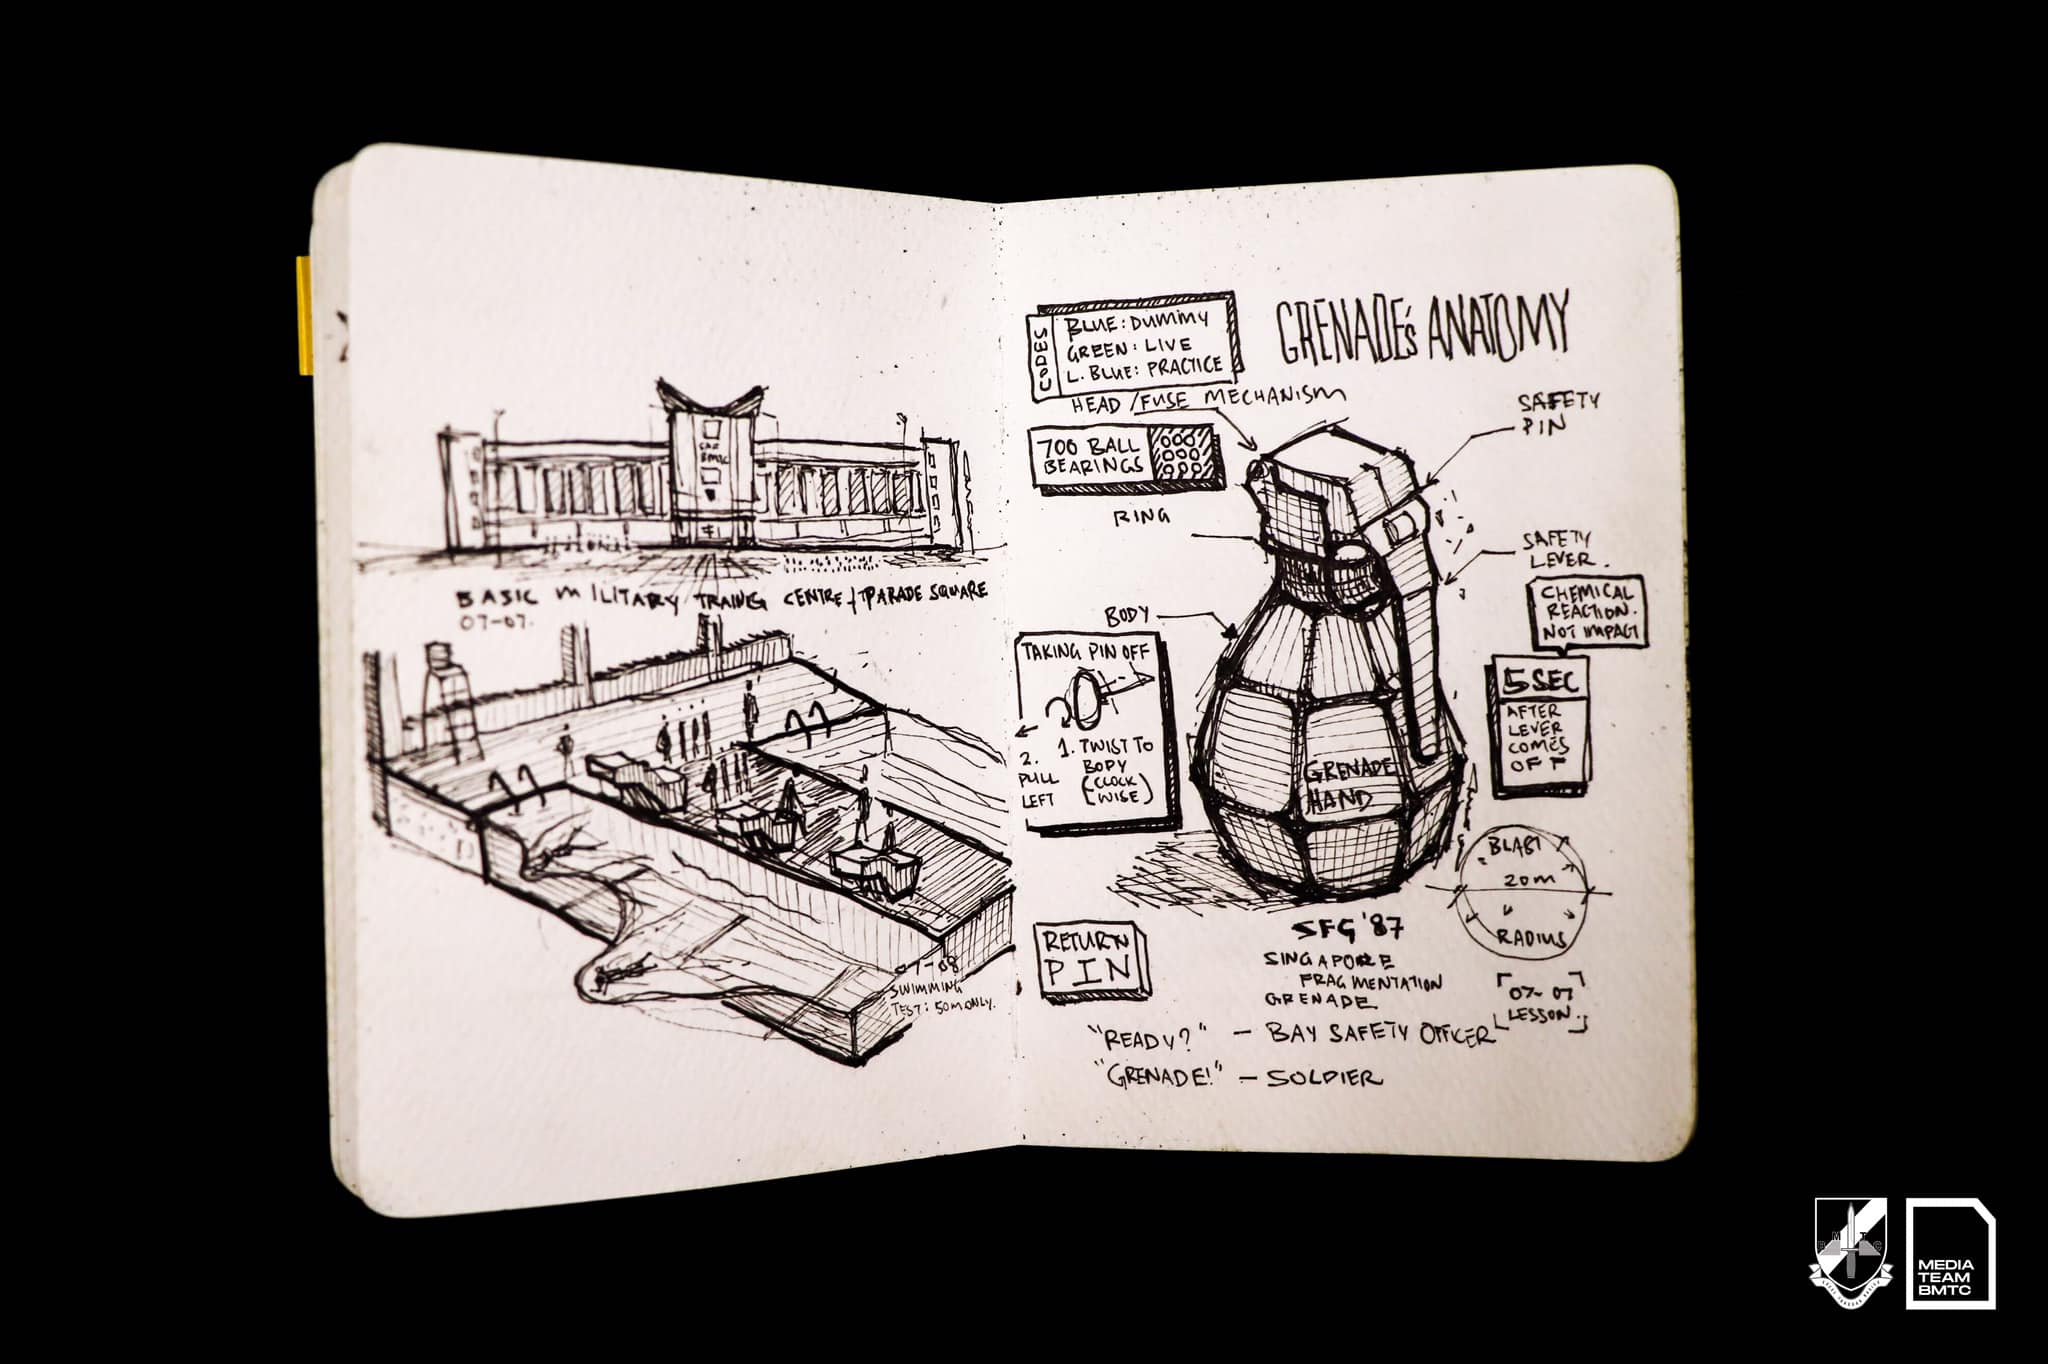 SAF
BMTC
BASIC MILITARY TRAING CENTRE / PARADE SQUARE
07-07.
07-08
SWIMMING
TEST: 50M ONLY.
GRENADE's ANATOMY
CODES
BLUE: DUMMY
GREEN: LIVE
L. BLUE: PRACTICE
HEAD / FUSE MECHANISM
SAFETY
PIN
700 BALL
BEARINGS
RING
SAFETY
LEVER.
CHEMICAL
REACTION.
NOT IMPACT
BODY
TAKING PIN OFF
1. TWIST TO
BODY
(CLOCK
WISE)
2.
PULL
LEFT
5 SEC
AFTER
LEVER
COMES
OFF
GRENADE
HAND
BLAST
20m
RADIUS
RETURN
PIN
SFG '87
SINGAPORE
FRAGMENTATION
GRENADE
07-07
LESSON.
"READY?" — BAY SAFETY OFFICER
"GRENADE!" — SOLDIER
BMTC
MEDIA
TEAM
BMTC